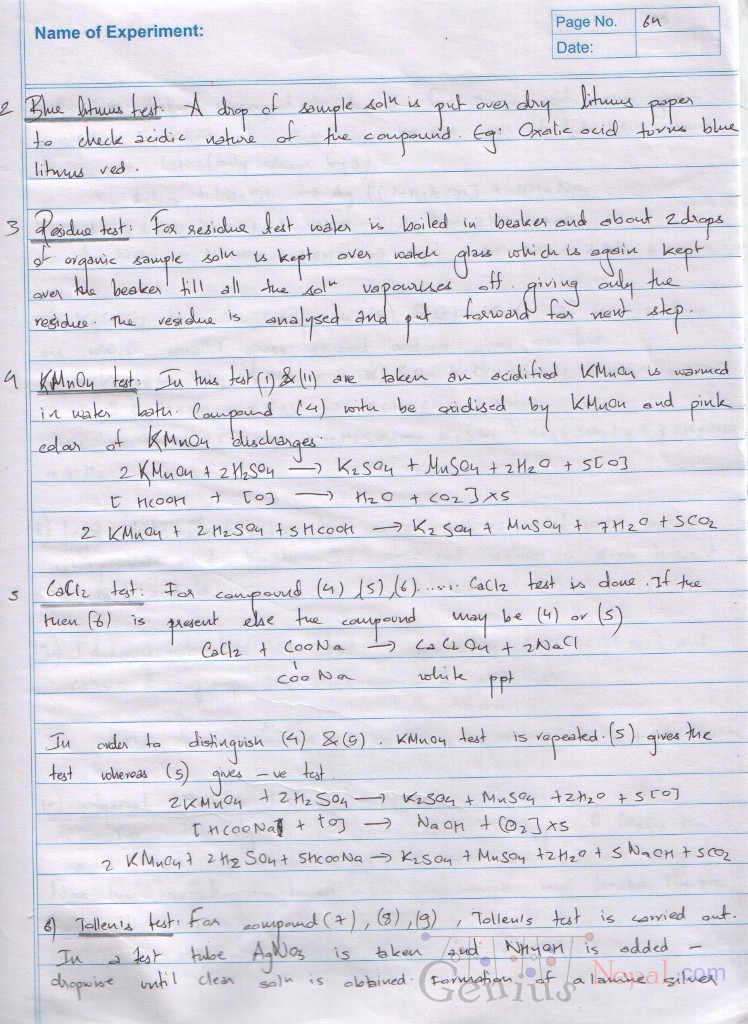 Name of Experiment:
Page No. 64
Date:
2 Blue litmus test. A drop of sample solⁿ is put over dry litmus paper
to check acidic nature of the compound. Eg: Oxalic acid turns blue
litmus red.
3 Residue test: For residue test water is boiled in beaker and about 2 drops
of organic sample solⁿ is kept over watch glass which is again kept
over the beaker till all the solⁿ vapourises off. giving only the
residue. The residue is analysed and put forward for next step.
4 KMnO4 test: In this test (1) & (11) are taken an acidified KMnO4 is warmed
in water bath. Compound (4) with be oxidised by KMnO4 and pink
color of KMnO4 discharges.
2 KMnO4 + 2H2SO4 → K2SO4 + MnSO4 + 2H2O + 5[O]
[ HCOOH + [O] → H2O + CO2 ] x5
2 KMnO4 + 2H2SO4 + 5HCOOH → K2SO4 + MnSO4 + 7H2O + 5CO2
5 CaCl2 test: For compound (4) (5) (6)...... CaCl2 test is done. If the
then (6) is present else the compound may be (4) or (5)
CaCl2 + COONa → CaC2O4 + 2NaCl
COONa white ppt
In order to distinguish (4) & (5). KMnO4 test is repeated. (5) gives the
test whereas (5) gives -ve test
2KMnO4 + 2H2SO4 → K2SO4 + MnSO4 + 2H2O + 5[O]
[HCOONa + [O] → NaOH + CO2] x5
2 KMnO4 + 2H2SO4 + 5HCOONa → K2SO4 + MnSO4 + 2H2O + 5NaOH + 5CO2
6) Tollen's test: For compound (7), (8), (9), Tollen's test is carried out.
In a test tube AgNO3 is taken and NH4OH is added -
dropwise until clear solⁿ is obtained. Formation of a lanine silver
GeniusNepal.com